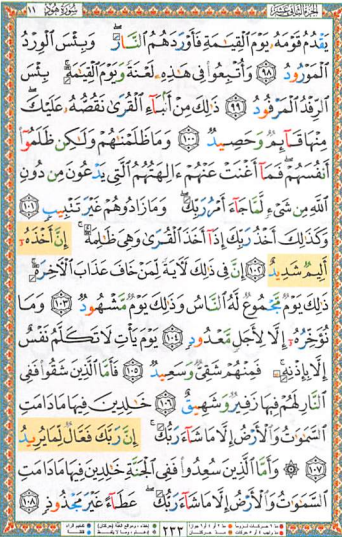 الجزء الثاني عشر
سُورَةُ هُودٍ ١١
يَقْدُمُ قَوْمَهُۥ يَوْمَ ٱلْقِيَٰمَةِ فَأَوْرَدَهُمُ ٱلنَّارَ ۖ وَبِئْسَ ٱلْوِرْدُ
ٱلْمَوْرُودُ ٩٨ وَأُتْبِعُوا۟ فِى هَٰذِهِۦ لَعْنَةً وَيَوْمَ ٱلْقِيَٰمَةِ ۚ بِئْسَ
ٱلرِّفْدُ ٱلْمَرْفُودُ ٩٩ ذَٰلِكَ مِنْ أَنۢبَآءِ ٱلْقُرَىٰ نَقُصُّهُۥ عَلَيْكَ ۖ
مِنْهَا قَآئِمٌ وَحَصِيدٌ ١٠٠ وَمَا ظَلَمْنَٰهُمْ وَلَٰكِن ظَلَمُوٓا۟
أَنفُسَهُمْ ۖ فَمَآ أَغْنَتْ عَنْهُمْ ءَالِهَتُهُمُ ٱلَّتِى يَدْعُونَ مِن دُونِ
ٱللَّهِ مِن شَىْءٍ لَّمَّا جَآءَ أَمْرُ رَبِّكَ ۖ وَمَا زَادُوهُمْ غَيْرَ تَتْبِيبٍ ١٠١
وَكَذَٰلِكَ أَخْذُ رَبِّكَ إِذَآ أَخَذَ ٱلْقُرَىٰ وَهِىَ ظَٰلِمَةٌ ۚ إِنَّ أَخْذَهُۥٓ
أَلِيمٌ شَدِيدٌ ١٠٢ إِنَّ فِى ذَٰلِكَ لَءَايَةً لِّمَنْ خَافَ عَذَابَ ٱلْءَاخِرَةِ ۚ
ذَٰلِكَ يَوْمٌ مَّجْمُوعٌ لَّهُ ٱلنَّاسُ وَذَٰلِكَ يَوْمٌ مَّشْهُودٌ ١٠٣ وَمَا
نُؤَخِّرُهُۥٓ إِلَّا لِأَجَلٍ مَّعْدُودٍ ١٠٤ يَوْمَ يَأْتِ لَا تَكَلَّمُ نَفْسٌ
إِلَّا بِإِذْنِهِۦ ۚ فَمِنْهُمْ شَقِىٌّ وَسَعِيدٌ ١٠٥ فَأَمَّا ٱلَّذِينَ شَقُوا۟ فَفِى
ٱلنَّارِ لَهُمْ فِيهَا زَفِيرٌ وَشَهِيقٌ ١٠٦ خَٰلِدِينَ فِيهَا مَا دَامَتِ
ٱلسَّمَٰوَٰتُ وَٱلْأَرْضُ إِلَّا مَا شَآءَ رَبُّكَ ۚ إِنَّ رَبَّكَ فَعَّالٌ لِّمَا يُرِيدُ
١٠٧ ۞ وَأَمَّا ٱلَّذِينَ سُعِدُوا۟ فَفِى ٱلْجَنَّةِ خَٰلِدِينَ فِيهَا مَا دَامَتِ
ٱلسَّمَٰوَٰتُ وَٱلْأَرْضُ إِلَّا مَا شَآءَ رَبُّكَ ۖ عَطَآءً غَيْرَ مَجْذُوذٍ ١٠٨
٢٣٣